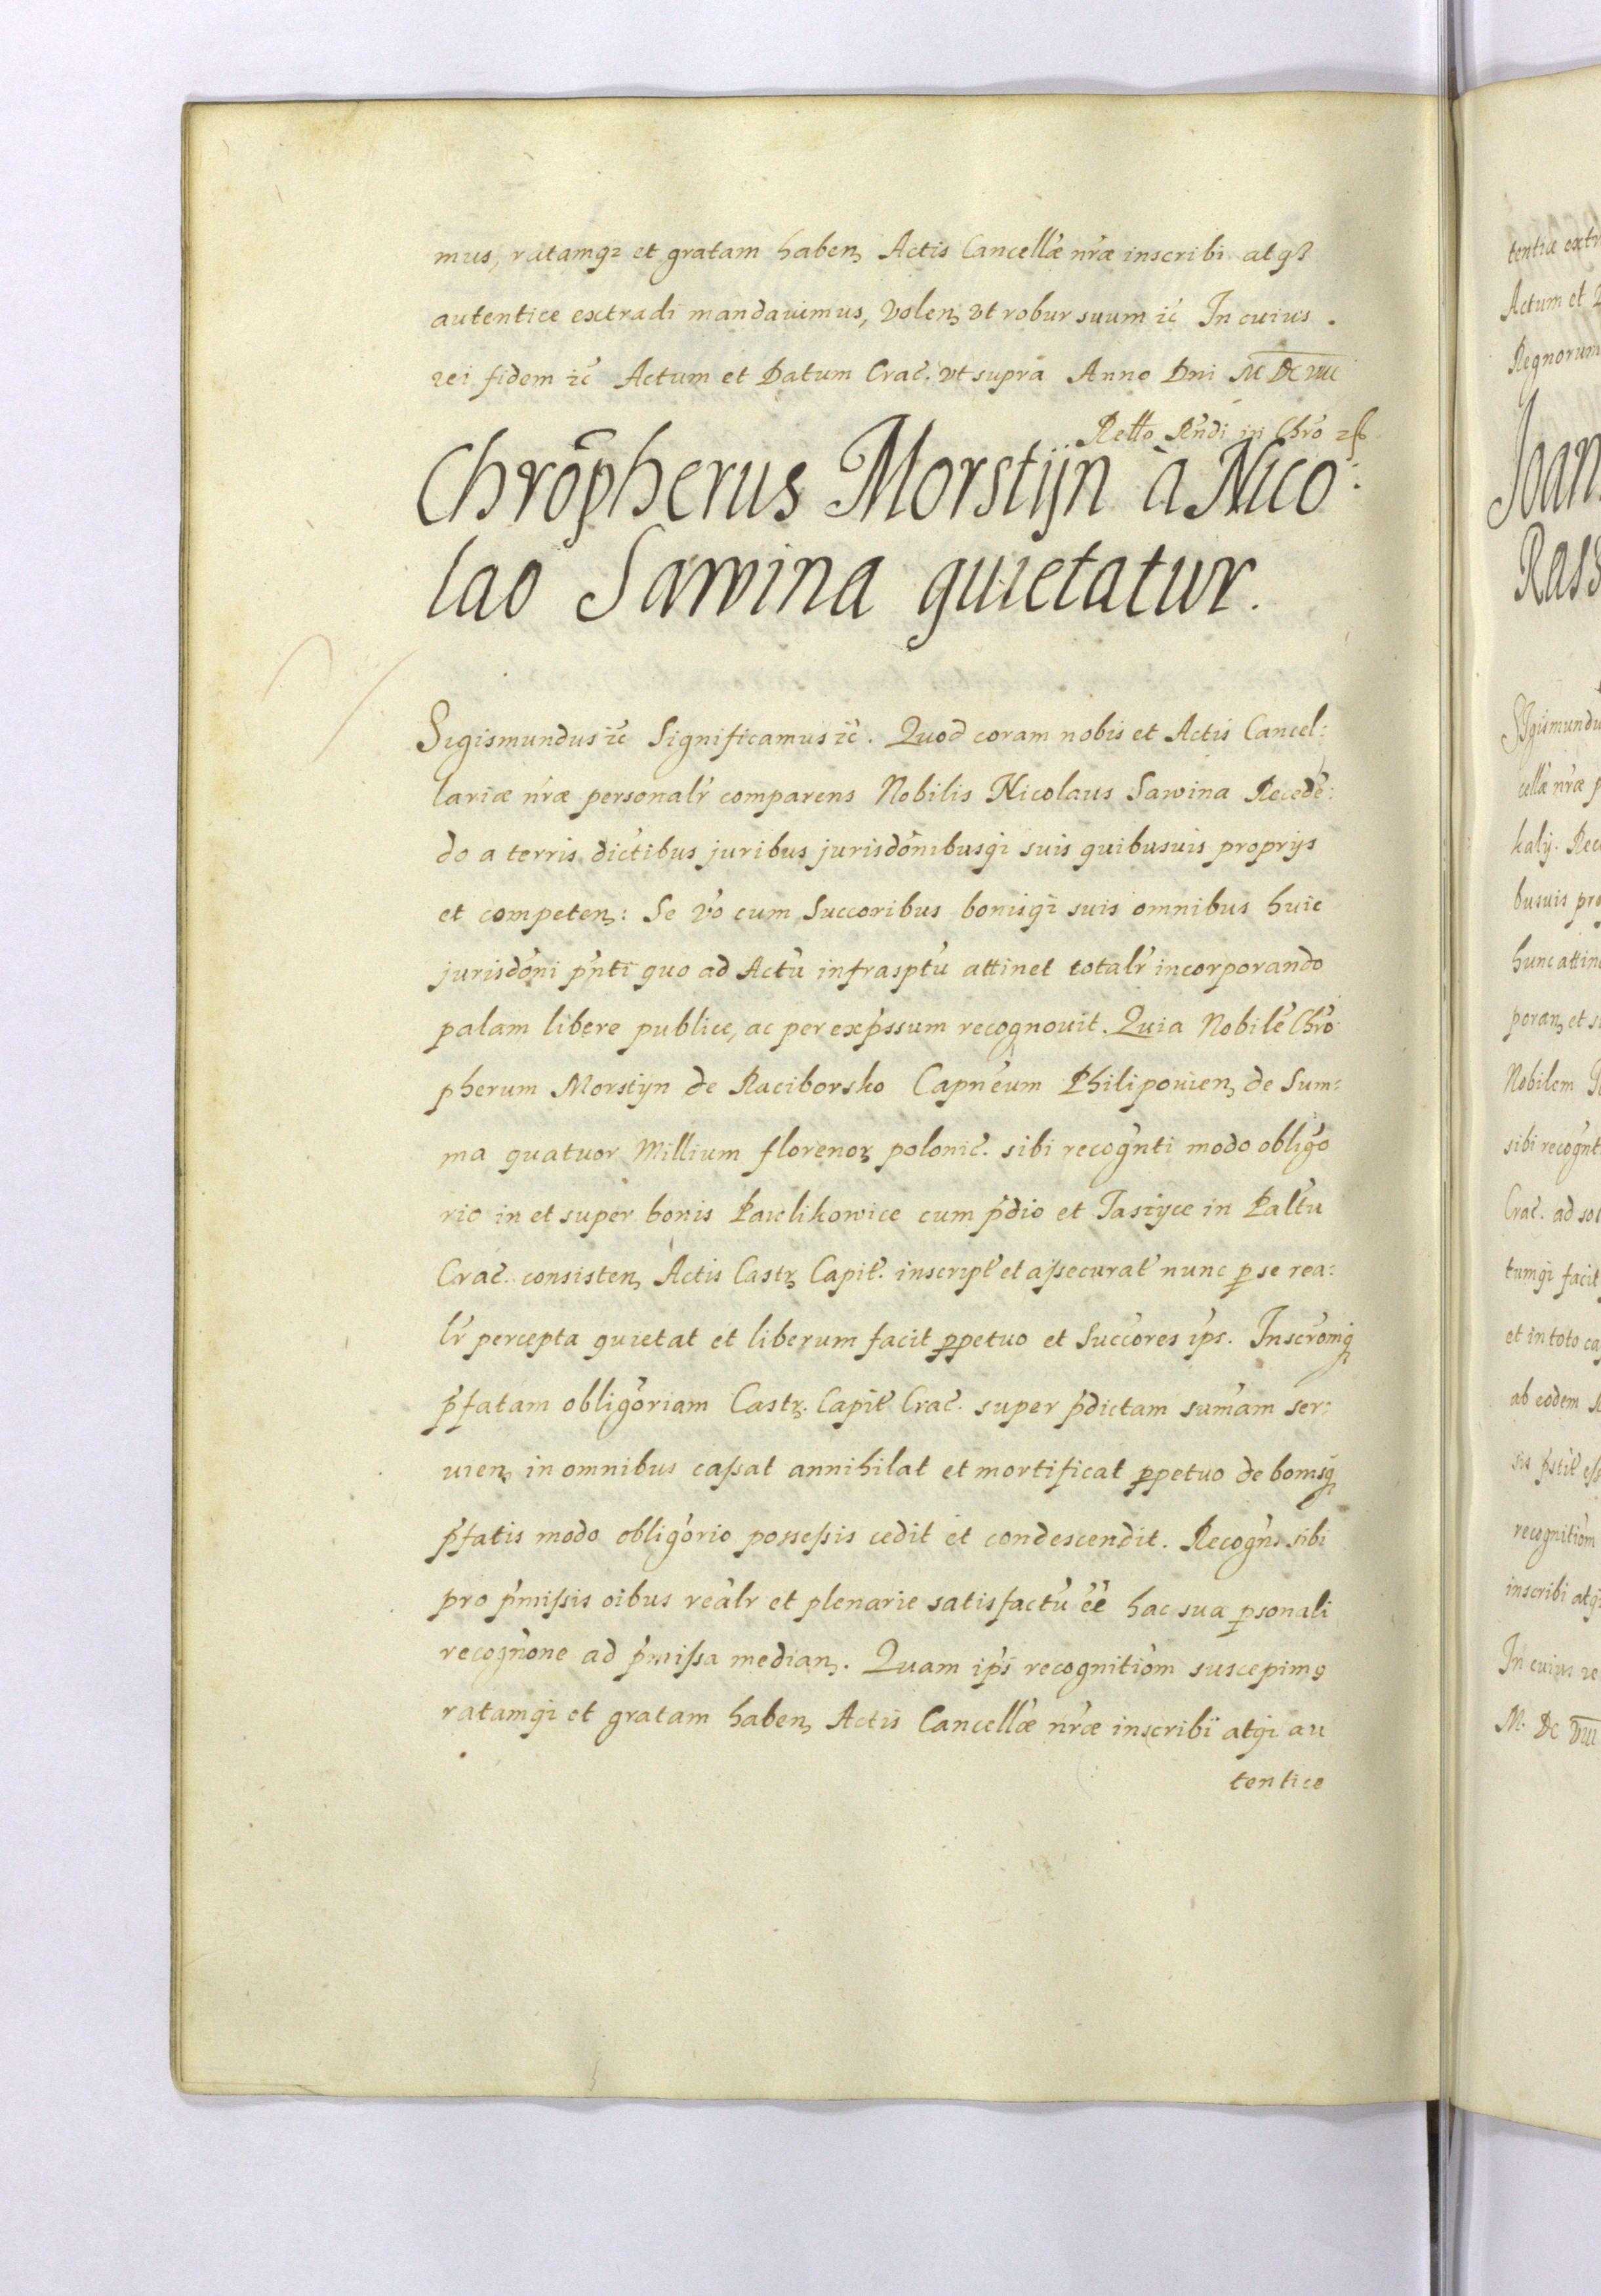 mus, ratamq̃ et gratam haben, Actis Cancellæ nr̃æ inscribi atq̃
autentice extradi mandauimus, Volen, Vt robur suum ic̃ In cuius.
rei fidem ic̃ Actum et Datum Crac̃. Vt supra Anno Dni M DC VIII
Retto Rndi in Chro
Chrõpherus Morstijn à Nico:
lao Sawina quietatur.
Sigismundus ic̃ Significamus ic̃. Quod coram nobis et Actis Cancel:
lariæ nr̃æ personalr̃ comparens Nobilis Nicolaus Sawina Recedẽ:
do a terris dictibus juribus jurisdõnibusq̃ suis quibusuis proprijs
et competen,: Se Vo cum Succoribus bonisq̃ suis omnibus huic
jurisdõni pñti quo ad Actũ infrasptũ attinet totalr̃ incorporando
palam libere publice, ac per exp̃ssum recognouit. Quia Nobilẽ Chrõ
pherum Morstijn de Raciborsko Capnẽum Philipouien, de Sum:
ma quatuor Millium florenoꝝ polonic̃. sibi recogñti modo oblig̃o
rio in et super bonis Pawlikowice cum p̃dio et Tasiyce in Paltũ
Crac̃. consisten, Actis Castꝝ Capit̃. inscript̃ et assecurat̃ nunc ꝑ se rea:
lr̃ percepta quietat et liberum facit ꝑpetuo et Succ̃ores ip̃s. Inscrõmq̃
p̃fatam oblig̃oriam Castꝝ. Capit̃ Crac̃. super p̃dictam sum̃am ser:
uien, in omnibus cassat annihilat et mortificat ꝑpetuo de bonisq̃
p̃fatis modo oblig̃orio possessis cedit et condescendit. Recogñs sibi
pro p̃missis oibus reãlr et plenarie satisfactũ eẽ hac sua ꝑsonali
recogñone ad p̃missa median,. Quam ip̃s recognitiõm suscepimꝯ
ratamq̃ et gratam haben, Actis Cancellæ nr̃æ inscribi atq̃ au
tentice